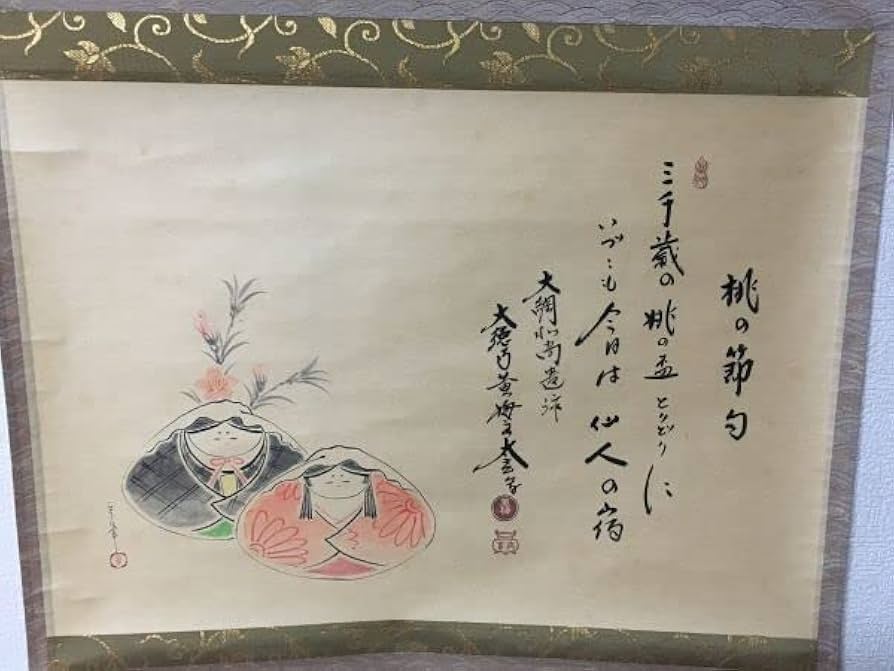 桃の節句
三千歳の桃の盃とりどりに
いづこも今日は仙人の宿
大綱和尚遺詠
大徳寺黄梅院太玄